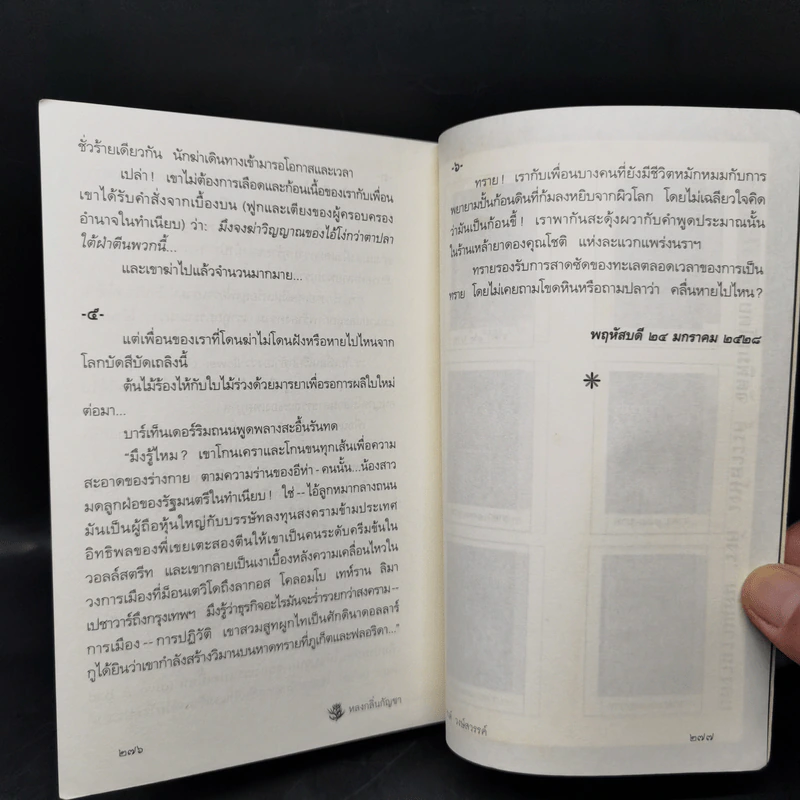 ชั่วร้ายเดียวกัน นักฆ่าเดินทางเข้ามารอโอกาสและเวลา
เปล่า! เขาไม่ต้องการเลือดและก้อนเนื้อของเรากับเพื่อน
เขาได้รับคำสั่งจากเบื้องบน (ฟูกและเตียงของผู้ครอบครอง
อำนาจในทำเนียบ) ว่า: มึงจงฆ่าวิญญาณของไอ้โง่กว่าตาปลา
ใต้ฝ่าตีนพวกนี้...
และเขาฆ่าไปแล้วจำนวนมากมาย...
-๕-
แต่เพื่อนของเราที่โดนฆ่าไม่โดนฝังหรือหายไปไหนจาก
โลกบัดสีบัดเถลิงนี้
ต้นไม้ร้องไห้กับใบไม้ร่วงด้วยมารยาเพื่อรอการผลิใบใหม่
ต่อมา...
บาร์เท็นเดอร์ริมถนนพูดพลางสะอื้นรันทด
"มึงรู้ไหม? เขาโกนเคราและโกนขนทุกเส้นเพื่อความ
สะอาดของร่างกาย ตามความร่านของอีห่า - คนนั้น...น้องสาว
มดลูกฝ่อของรัฐมนตรีในทำเนียบ! ใช่ -- ไอ้ลูกหมากลางถนน
มันเป็นผู้ถือหุ้นใหญ่กับบรรษัทลงทุนสงครามข้ามประเทศ
อิทธิพลของพี่เขยเตะสองตีนให้เขาเป็นคนระดับครีมข้นใน
วอลล์สตรีท และเขากลายเป็นเงาเบื้องหลังความเคลื่อนไหวใน
วงการเมืองที่ม็อนเตวิโดถึงลากอส โคลอมโบ เทห์ราน ลิมา
เปชาวาร์ถึงกรุงเทพฯ มึงรู้ว่าธุรกิจอะไรมันจะร่ำรวยกว่าสงคราม --
การเมือง -- การปฏิวัติ เขาสวมสูทผูกไทเป็นศักดินาดอลลาร์
กูได้ยินว่าเขากำลังสร้างวิมานบนหาดทรายที่ภูเก็ตและฟลอริดา..."
หลงกลิ่นกัญชา
๒๗๖
-๖-
ทราย! เรากับเพื่อนบางคนที่ยังมีชีวิตหมักหมมกับการ
พยายามปั้นก้อนดินที่ก้มลงหยิบจากผิวโลก โดยไม่เฉลียวใจคิด
ว่ามันเป็นก้อนขี้! เราพากันสะดุ้งผวากับคำพูดประมาณนั้น
ในร้านเหล้ายาดองคุณโชติ แห่งละแวกแพร่งนราฯ
ทรายรองรับการสาดซัดของทะเลตลอดเวลาของการเป็น
ทราย โดยไม่เคยถามโขดหินหรือถามปลาว่า คลื่นหายไปไหน?
พฤหัสบดี ๒๔ มกราคม ๒๕๒๘
วงษ์สวรรค์
๒๗๗